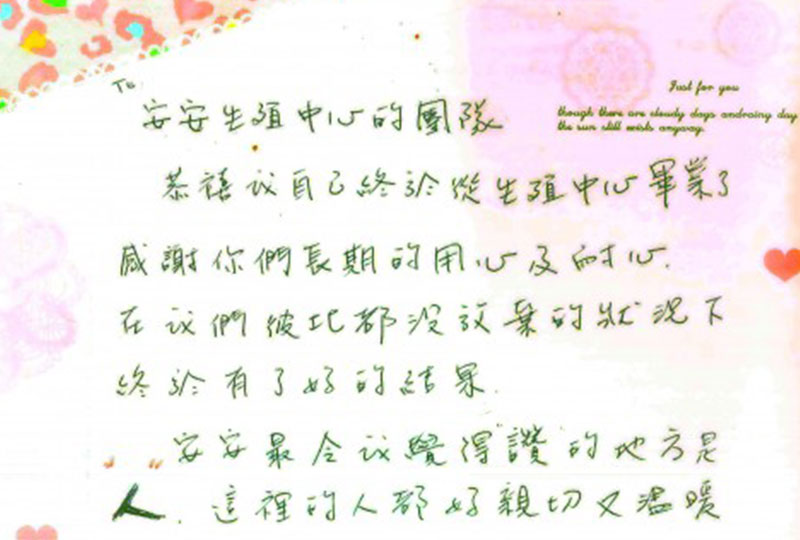 To
安安生殖中心的團隊
Just for you
though there are cloudy days and rainy day
the sun still exists anyway.
恭禧我自己終於從生殖中心畢業了
感謝你們長期的用心及耐心.
在我們彼此都沒放棄的狀況下
終於有了好的結果.
安安最令我覺得"讚"的地方是
人. 這裡的人都好親切又溫暖